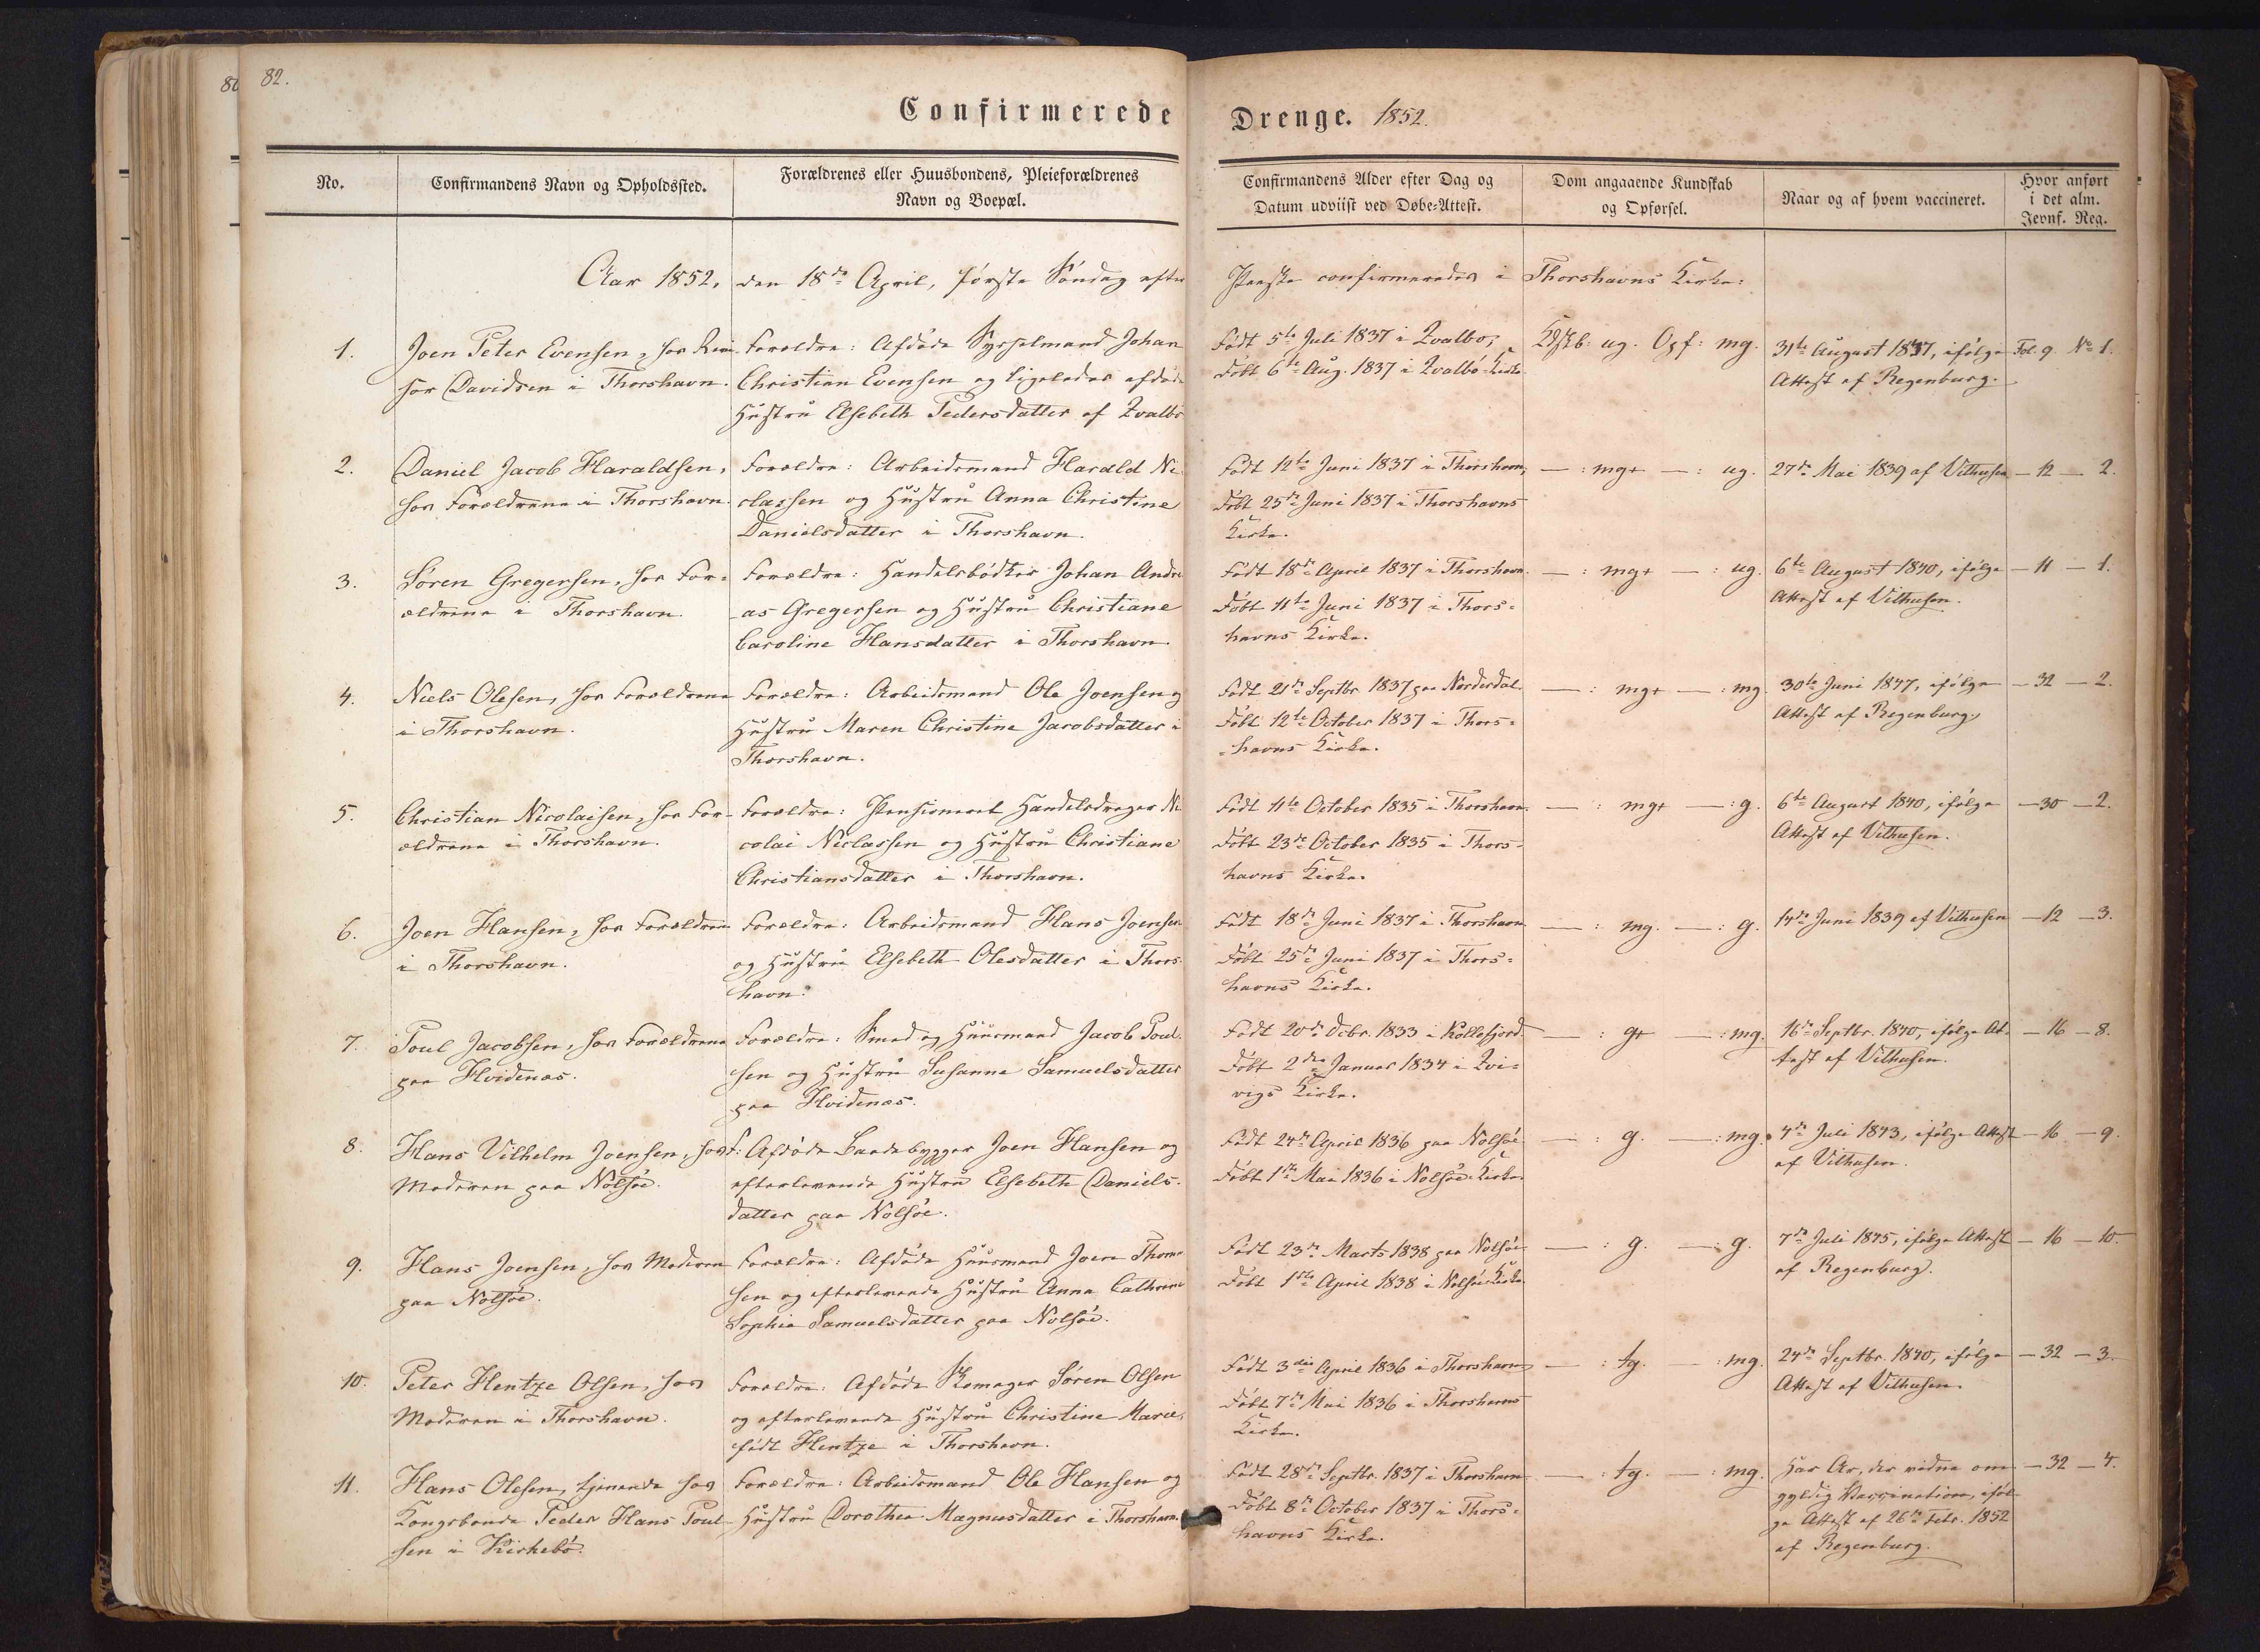 82.
Confirmerede Drenge. 1852.
No.
Confirmandens Navn og Opholdssted.
Forældrenes eller Huusbondens, Pleieforældrenes
Navn og Boepæl.
Confirmandens Alder efter Dag og
Datum udviist ved Døbe-Attest.
Dom angaaende Kundskab
og Opførsel.
Naar og af hvem vaccineret.
Hvor anført
i det alm.
Jevnf. Reg.
Aar 1852, den 18de April, første Søndag efter Paaske confirmeredes i Thorshavns Kirke:
1.
Joen Peter Evensen, hos
hos Davidsen i Thorshavn.
Forældre: Afdøde Sysselmand Johan
Christian Evensen og ligeledes afdøde
Hustru Elsebeth Pedersdatter af Qvalbø
Født 5te Juli 1837 i Qvalbø,
Døbt 6te Aug. 1837 i Qvalbø-Kirke
Kdskb: ug. Opf: mg.
31te August 1847, ifølge
Attest af Regenburg.
Fol. 9. No 1.
2.
Daniel Jacob Haraldsen,
hos Forældrene i Thorshavn.
Forældre: Arbeidsmand Harald Ni-
classen og Hustru Anna Christine
Danielsdatter i Thorshavn.
Født 12te Juni 1837 i Thorshavn,
Døbt 25de Juni 1837 i Thorshavns
Kirke.
— : mg+ — : ug.
27de Mai 1839 af Vilhelsen
— 12 — 2.
3.
Søren Gregersen, hos For-
ældrene i Thorshavn.
Forældre: Handelsbødker Johan Andre-
as Gregersen og Hustru Christiane
Caroline Hansdatter i Thorshavn
Født 18de April 1837 i Thorshavn.
Døbt 11te Juni 1837 i Thors-
havns Kirke.
— : mg+ — : ug.
6te August 1840, ifølge
Attest af
— 11 — 1.
4.
Niels Olesen, hos Forældrene
i Thorshavn.
Forældre: Arbeidsmand Ole Joensen og
Hustru Maren Christine Jacobsdatter i
Thorshavn.
Født 21de Septbr 1837 paa Nordredal.
Døbt 12te October 1837 i Thors-
havns Kirke.
— : mg+ — : mg.
30te Juni 1847, ifølge
Attest af Regenburg.
— 32 — 2.
5.
Christian Nicolaisen, hos For-
ældrene i Thorshavn.
Forældre: Pensioneret Handelsdrager Ni-
colai Niclassen og Hustru Christiane
Christiansdatter i Thorshavn.
Født 11te October 1835 i Thorshavn.
Døbt 23de October 1835 i Thors-
havns Kirke.
— : mg+ — : g.
6te August 1840, ifølge
Attest af
— 30 — 2.
6.
Joen Hansen, hos Forældrene
i Thorshavn.
Forældre: Arbeidsmand Hans Joensen
og Hustru Elsebeth Olesdatter i Thors-
havn.
Født 18de Juni 1837 i Thorshavn.
Døbt 25de Juni 1837 i Thors-
havns Kirke.
— : mg. — : g.
14de Juni 1839 af
— 12 — 3.
7.
Poul Jacobsen, hos Forældrene
paa Hvidenæs.
Forældre: Smed og Huusmand Jacob Poul-
sen og Hustru Susanne Samuelsdatter
paa Hvidenæs.
Født 20de Dcbr. 1833 i Kollefjord.
Døbt 2den Januar 1834 i Qvi-
vigs Kirke.
— : g+ — : mg.
16de Septbr. 1840, ifølge At-
test af
— 16 — 8.
8.
Hans Vilhelm Joensen, hos
Moderen paa Nolsøe.
F: Afdøde Baadebygger Joen Hansen og
efterlevende Hustru Elsebeth Daniels-
datter paa Nolsøe.
Født 24de April 1836 paa Nolsøe.
Døbt 1ste Mai 1836 i Nolsøe-Kirke.
— : g. — : mg.
4de Juli 1843, ifølge Attest
af
— 16 — 9.
9.
Hans Joensen, hos Moderen
paa Nolsøe.
Forældre: Afdøde Huusmand Joen Thom-
sen og efterlevende Hustru Anna Cathrine
Sophie Samuelsdatter paa Nolsøe.
Født 23de Marts 1838 paa Nolsøe
Døbt 1ste April 1838 i Nolsøe-Kirke.
— : g. — : g.
7de Juli 1845, ifølge Attest
af Regenburg.
— 16 — 10.
10.
Peter Hentze Olsen, hos
Moderen i Thorshavn.
Forældre: Afdøde Skomager Søren Olsen
og efterlevende Hustru Christine Marie,
født Hentze i Thorshavn.
Født 3die April 1836 i Thorshavn,
Døbt 7de Mai 1836 i Thorshavns
Kirke.
— : tg. — : mg.
24de Septbr. 1840, ifølge
Attest af
— 32 — 3.
11.
Hans Olesen, tjenende hos
Kongsbonde Peder Hans Poul-
sen i Kirkebø.
Forældre: Arbeidsmand Ole Hansen og
Hustru Dorothea Magnusdatter i Thorshavn.
Født 28de Septbr. 1837 i Thorshavn
Døbt 8de October 1837 i Thors-
havns Kirke.
— : tg. — : mg.
Har Ar, der vidne om
gyldig Vaccination, iføl-
ge Attest af 26de Febr. 1852
af Regenburg.
— 32 — 4.